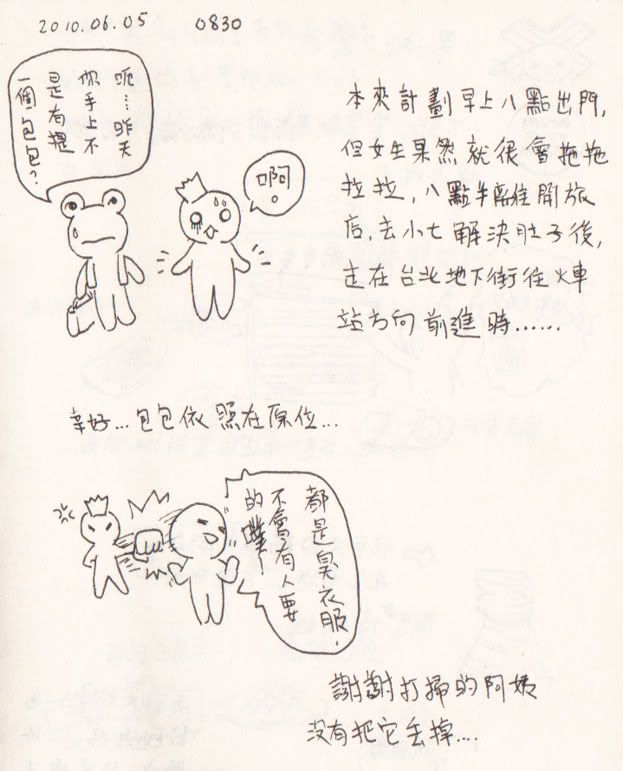 2010.06.05 0830
呃...昨天
你手上不
是有提
一個包包？
啊。
本來計劃早上八點出門,
但女生果然就很會拖拖
拉拉, 八點半離開旅
店, 去小七解決肚子後,
走在台北地下街往火車
站方向前進時......
幸好...包包依照在原位...
都是臭衣服.
不會有人要
的噗
謝謝打掃的阿姨
沒有把它丟掉....